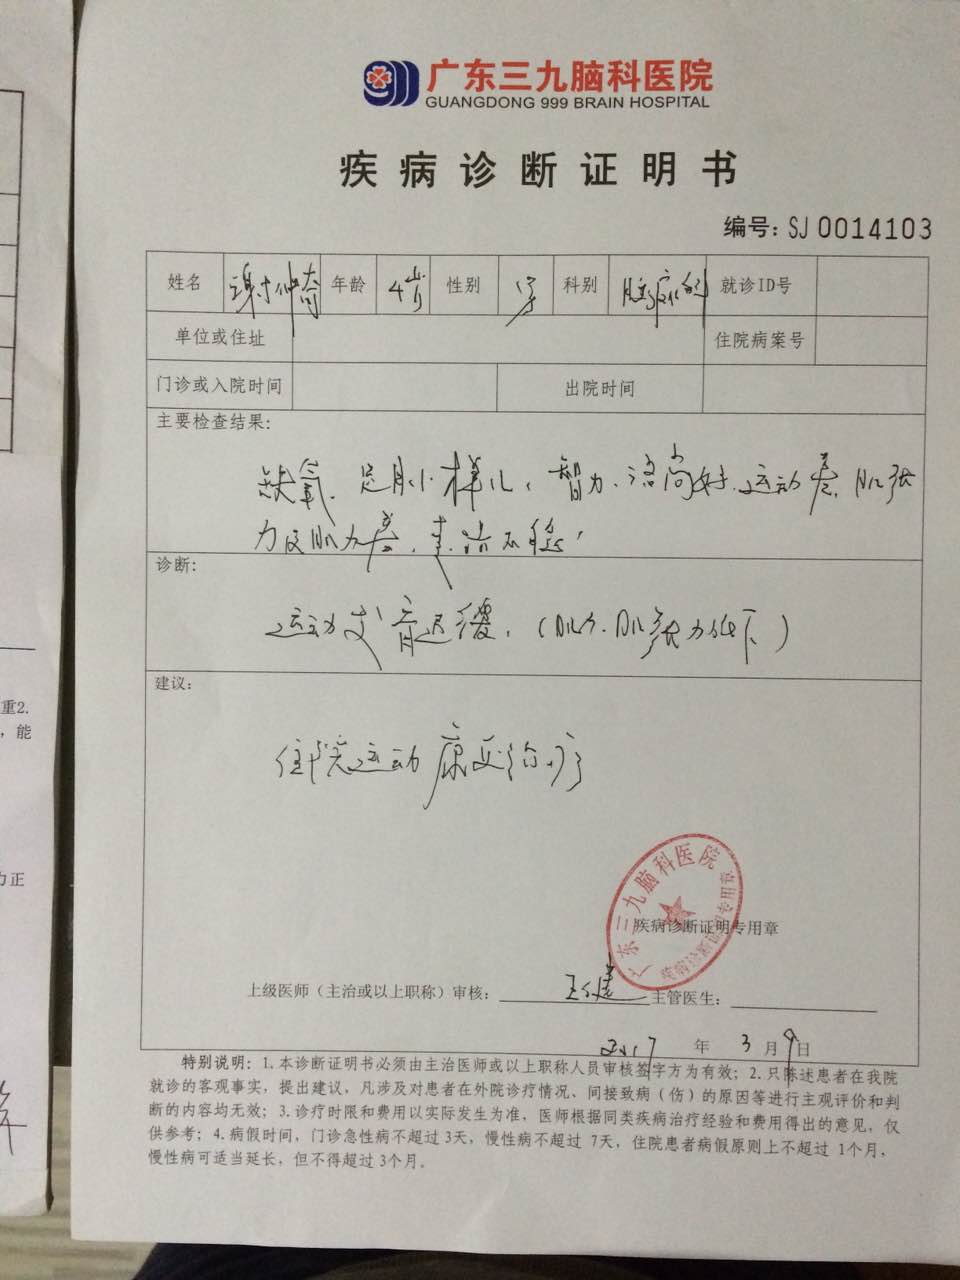 广东三九脑科医院
GUANGDONG 999 BRAIN HOSPITAL
疾病诊断证明书
编号：SJ 0014103
姓名 谢 仲 年龄 4岁 性别 男 科别 就诊ID号
单位或住址 住院病案号
门诊或入院时间 出院时间
主要检查结果：
缺氧、足月小样儿，智力、语尚好、运动差，肌张
力及肌力差，走 不稳，
诊断：
运动发育迟缓，（肌力、肌张力低下）
建议：
住院运动康复治疗
广东三九脑科医院
疾病诊断证明专用章
疾病诊断证明专用章
上级医师（主治或以上职称）审核： 主管医生：
2017 年 3 月 9 日
特别说明：1. 本诊断证明书必须由主治医师或以上职称人员审核签字方为有效；2. 只陈述患者在我院
就诊的客观事实，提出建议，凡涉及对患者在外院诊疗情况、间接致病（伤）的原因等进行主观评价和判
断的内容均无效；3. 诊疗时限和费用以实际发生为准，医师根据同类疾病治疗经验和费用得出的意见，仅
供参考；4. 病假时间，门诊急性病不超过 3天，慢性病不超过 7天，住院患者病假原则上不超过 1个月，
慢性病可适当延长，但不得超过 3个月。
重2.
，能
力正